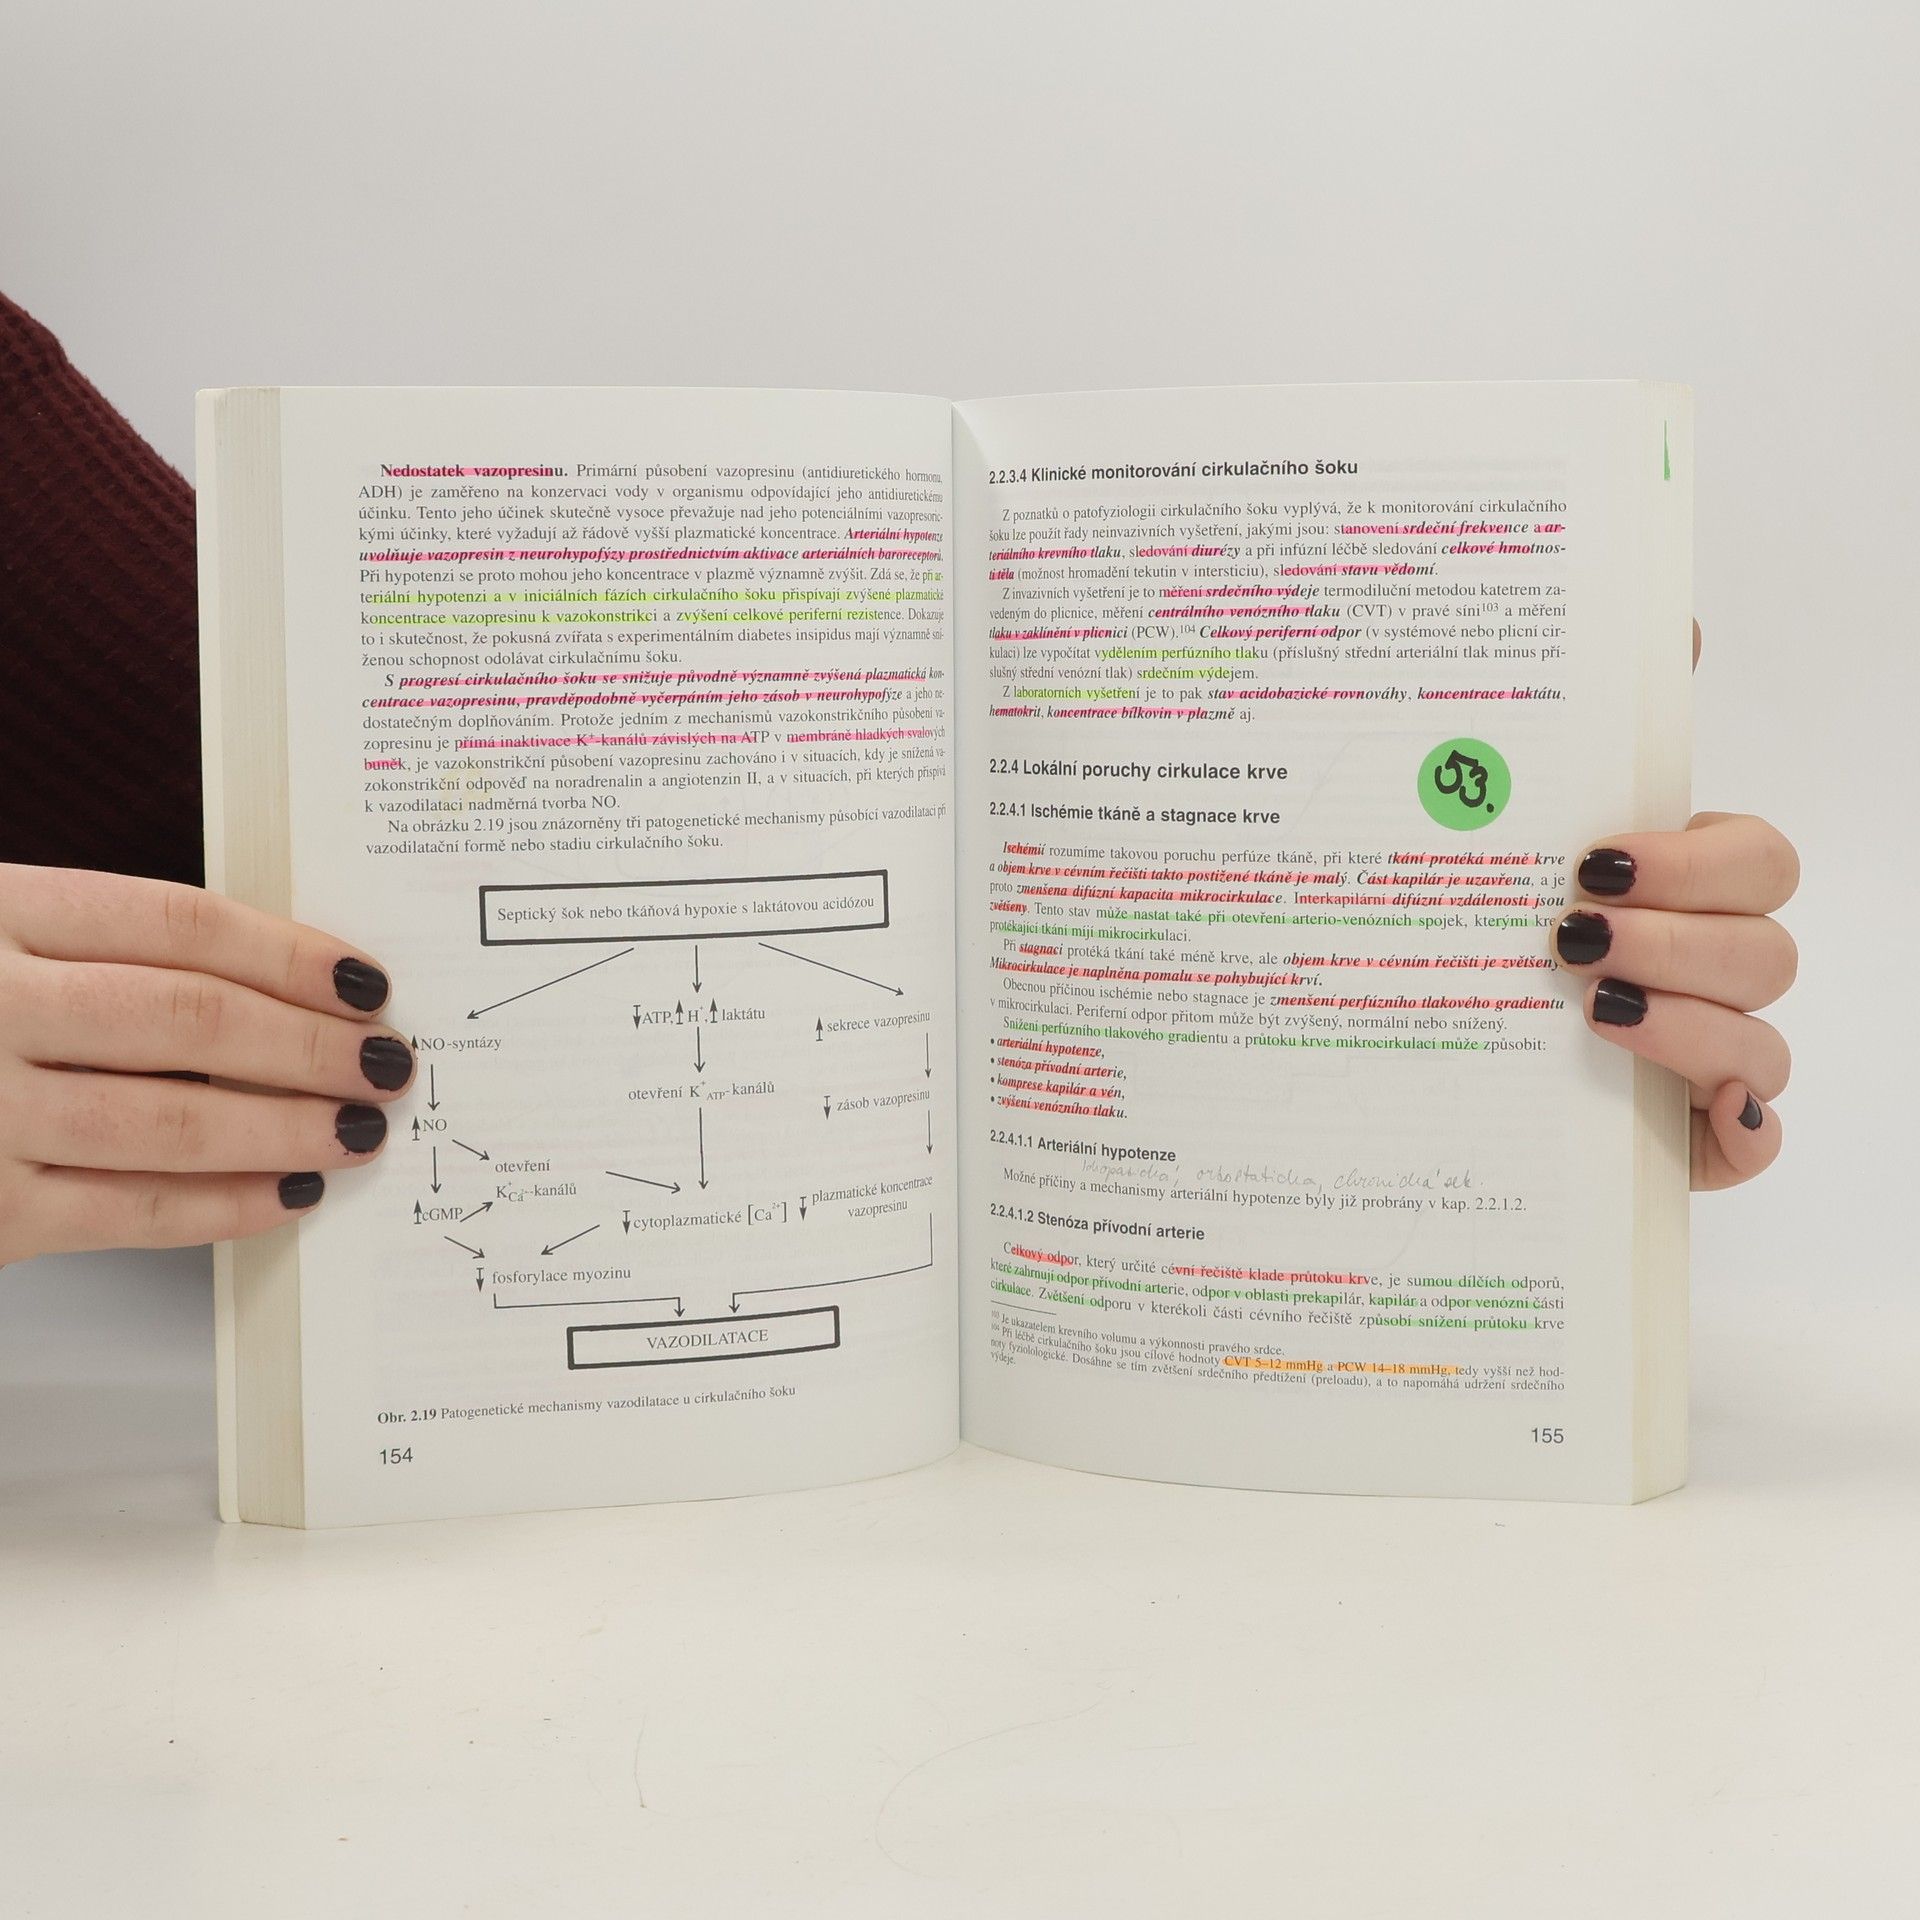 Nedostatek vazopresinu. Primární působení vazopresinu (antidiuretického hormonu,
ADH) je zaměřeno na konzervaci vody v organismu odpovídající jeho antidiuretickému
účinku. Tento jeho účinek skutečně vysoce převažuje nad jeho potenciálními vazopresoric-
kými účinky, které vyžadují až řádově vyšší plazmatické koncentrace. Arteriální hypotenze
uvolňuje vazopresin z neurohypofýzy prostřednictvím aktivace arteriálních baroreceptorů.
Při hypotenzi se proto mohou jeho koncentrace v plazmě významně zvýšit. Zdá se, že při ar-
teriální hypotenzi a v iniciálních fázích cirkulačního šoku přispívají zvýšené plazmatické
koncentrace vazopresinu k vazokonstrikci a zvýšení celkové periferní rezistence. Dokazuje
to i skutečnost, že pokusná zvířata s experimentálním diabetes insipidus mají významně sní-
ženou schopnost odolávat cirkulačnímu šoku.
S progresí cirkulačního šoku se snižuje původně významně zvýšená plazmatická kon-
centrace vazopresinu, pravděpodobně vyčerpáním jeho zásob v neurohypofýze a jeho ne-
dostatečným doplňováním. Protože jedním z mechanismů vazokonstrikčního působení va-
zopresinu je přímá inaktivace K⁺-kanálů závislých na ATP v membráně hladkých svalových
buněk, je vazokonstrikční působení vazopresinu zachováno i v situacích, kdy je snížená va-
zokonstrikční odpověď na noradrenalin a angiotenzin II, a v situacích, při kterých přispívá
k vazodilataci nadměrná tvorba NO.
Na obrázku 2.19 jsou znázorněny tři patogenetické mechanismy působící vazodilataci při
vazodilatační formě nebo stadiu cirkulačního šoku.
Septický šok nebo tkáňová hypoxie s laktátovou acidózou
ATP, H⁺, laktátu
sekrece vazopresinu
NO-syntázy
otevření K⁺ATP-kanálů
zásob vazopresinu
NO
otevření
K⁺Ca²⁺-kanálů
plazmatické koncentrace
vazopresinu
cGMP
cytoplazmatické [Ca²⁺]
fosforylace myozinu
VAZODILATACE
Obr. 2.19 Patogenetické mechanismy vazodilatace u cirkulačního šoku
154
2.2.3.4 Klinické monitorování cirkulačního šoku
Z poznatků o patofyziologii cirkulačního šoku vyplývá, že k monitorování cirkulačního
šoku lze použít řady neinvazivních vyšetření, jakými jsou: stanovení srdeční frekvence a ar-
teriálního krevního tlaku, sledování diurézy a při infúzní léčbě sledování celkové hmotnos-
ti těla (možnost hromadění tekutin v intersticiu), sledování stavu vědomí.
Z invazivních vyšetření je to měření srdečního výdeje termodiluční metodou katetrem za-
vedeným do plicnice, měření centrálního venózního tlaku (CVT) v pravé síni¹⁰³ a měření
tlaku v zaklínění v plicnici (PCW).¹⁰⁴ Celkový periferní odpor (v systémové nebo plicní cir-
kulaci) lze vypočítat vydělením perfúzního tlaku (příslušný střední arteriální tlak minus pří-
slušný střední venózní tlak) srdečním výdejem.
Z laboratorních vyšetření je to pak stav acidobazické rovnováhy, koncentrace laktátu,
hematokrit, koncentrace bílkovin v plazmě aj.
2.2.4 Lokální poruchy cirkulace krve
53.
2.2.4.1 Ischémie tkáně a stagnace krve
Ischémií rozumíme takovou poruchu perfúze tkáně, při které tkání protéká méně krve
a objem krve v cévním řečišti takto postižené tkáně je malý. Část kapilár je uzavřena, a je
proto zmenšena difúzní kapacita mikrocirkulace. Interkapilární difúzní vzdálenosti jsou
zvětšeny. Tento stav může nastat také při otevření arterio-venózních spojek, kterými kre
protékající tkání míjí mikrocirkulaci.
Při stagnaci protéká tkání také méně krve, ale objem krve v cévním řečišti je zvětšený.
Mikrocirkulace je naplněna pomalu se pohybující krví.
Obecnou příčinou ischémie nebo stagnace je zmenšení perfúzního tlakového gradientu
v mikrocirkulaci. Periferní odpor přitom může být zvýšený, normální nebo snížený.
Snížení perfúzního tlakového gradientu a průtoku krve mikrocirkulací může způsobit:
• arteriální hypotenze,
• stenóza přívodní arterie,
• komprese kapilár a vén,
• zvýšení venózního tlaku.
2.2.4.1.1 Arteriální hypotenze
idiopatická, ortostatická, chronická sek.
Možné příčiny a mechanismy arteriální hypotenze byly již probrány v kap. 2.2.1.2.
2.2.4.1.2 Stenóza přívodní arterie
Celkový odpor, který určité cévní řečiště klade průtoku krve, je sumou dílčích odporů,
které zahrnují odpor přívodní arterie, odpor v oblasti prekapilár, kapilár a odpor venózní části
cirkulace. Zvětšení odporu v kterékoli části cévního řečiště způsobí snížení průtoku krve
¹⁰³ Je ukazatelem krevního volumu a výkonnosti pravého srdce.
¹⁰⁴ Při léčbě cirkulačního šoku jsou cílové hodnoty CVT 5–12 mmHg a PCW 14–18 mmHg, tedy vyšší než hod-
noty fyziolologické. Dosáhne se tím zvětšení srdečního předtížení (preloadu), a to napomáhá udržení srdečního
výdeje.
155